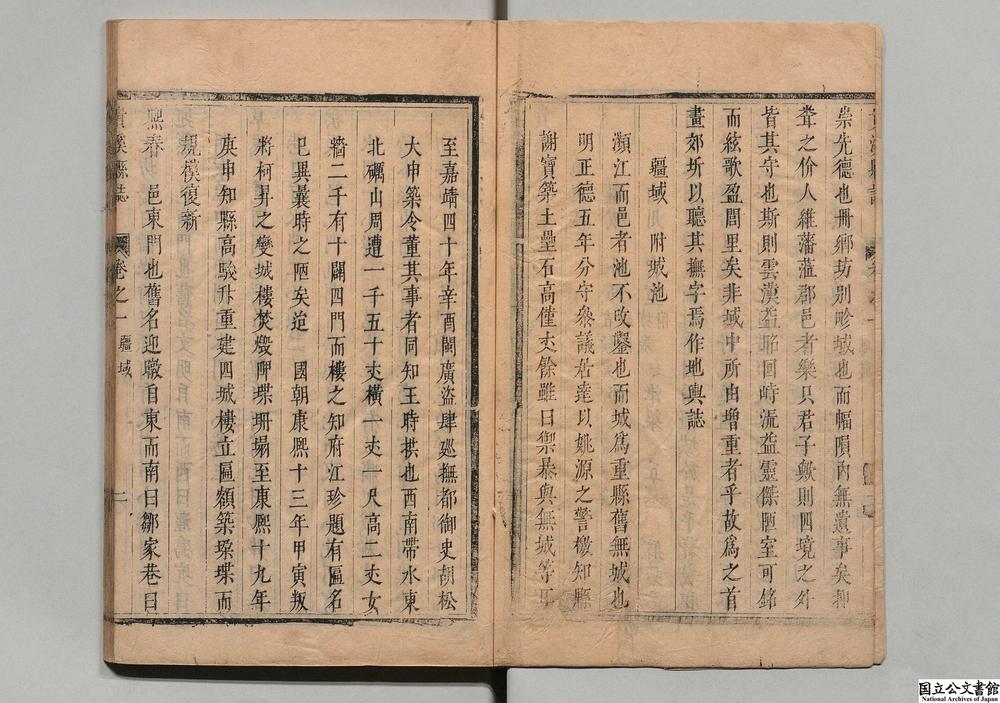 崇先德也冊鄉坊别畛域也而幅隕内無遺事矣抑
聳之价人維藩蒞郡邑者樂只君子歟則四境之外
皆其守也斯則雲漢益昭回峙流益靈傑陋室可銘
而絃歌盈閭里矣非域中所由增重者乎故爲之首
畫郊圻以聽其撫字焉作地輿誌
疆域 附城池
瀕江而邑者池不改鑿也而城爲重縣舊無城也
明正德五年分守叅議若達以姚源之警檄知縣
謝寶築土壘石高僅丈餘雖曰禦暴與無城等耳
至嘉靖四十年辛酉閩廣盜肆廵撫都御史胡松
大申築令董其事者同知王時棋也西南帶水東
北礪山周遭一千五十丈橫一丈一尺高二丈女
牆二千有十闢四門而樓之知府江珍題有區名
巳異曩時之陋矣迨 國朝康熙十三年甲寅叛
將柯昇之變城樓焚燬陴堞坍塌至康熙十九年
庚申知縣高駿升重建四城樓立匾額築垜堞而
規模復新
熙春 邑東門也舊名迎墩自東而南曰鄒家巷曰
貴溪縣誌 卷之一 疆域 二
国立公文書館
National Archives of Japan